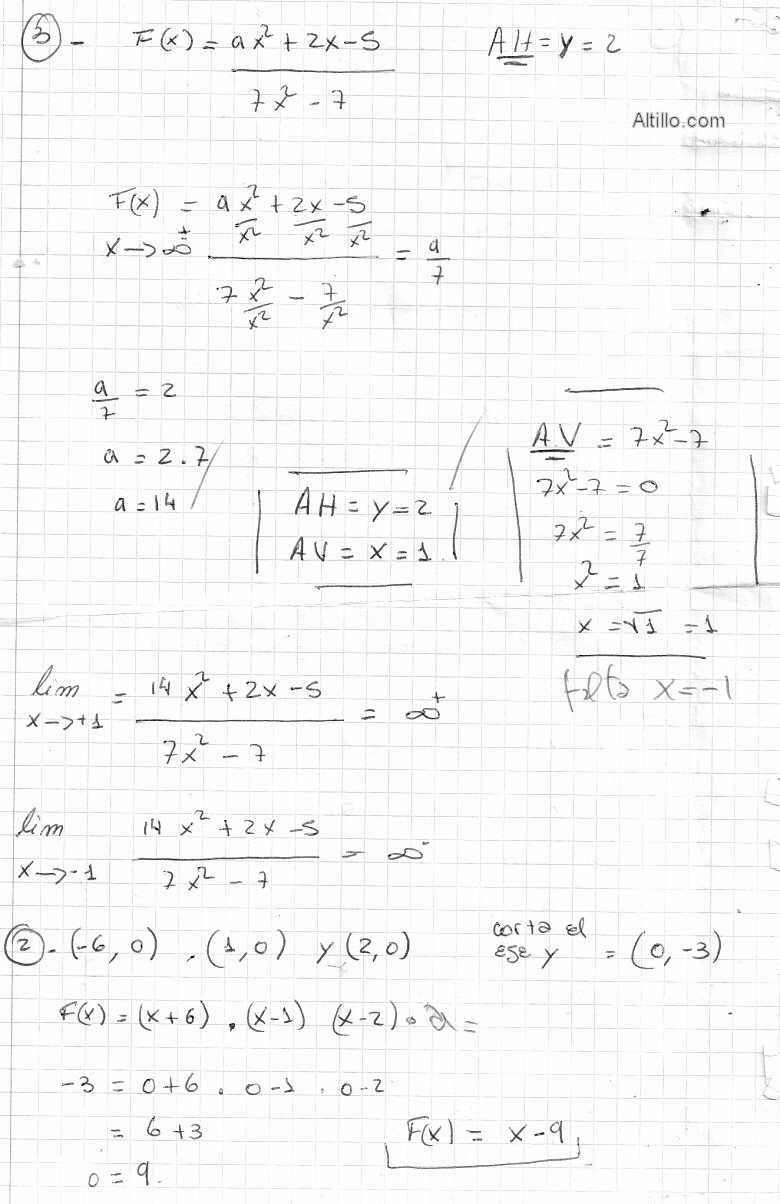 3 - F(x) = ax² + 2x - 5 / 7x² - 7    AH = y = 2
Altillo.com
F(x) x→∞± = a x²/x² + 2x/x² - 5/x² / 7 x²/x² - 7/x² = a/7
a/7 = 2
a = 2.7
a = 14
AH = y = 2
AV = x = 1
A.V = 7x² - 7
7x² - 7 = 0
7x² = 7/7
x² = 1
x = √1 = 1
falta x = -1
lim x→+1 = 14x² + 2x - 5 / 7x² - 7 = ∞⁺
lim x→-1 14x² + 2x - 5 / 7x² - 7 = ∞⁻
2 - (-6, 0) . (1, 0) y (2, 0)    corta el eje y = (0, -3)
F(x) = (x+6) . (x-1) (x-2) . a =
-3 = 0+6 . 0-1 . 0-2
= 6 + 3
0 = 9.
F(x) = x - 9